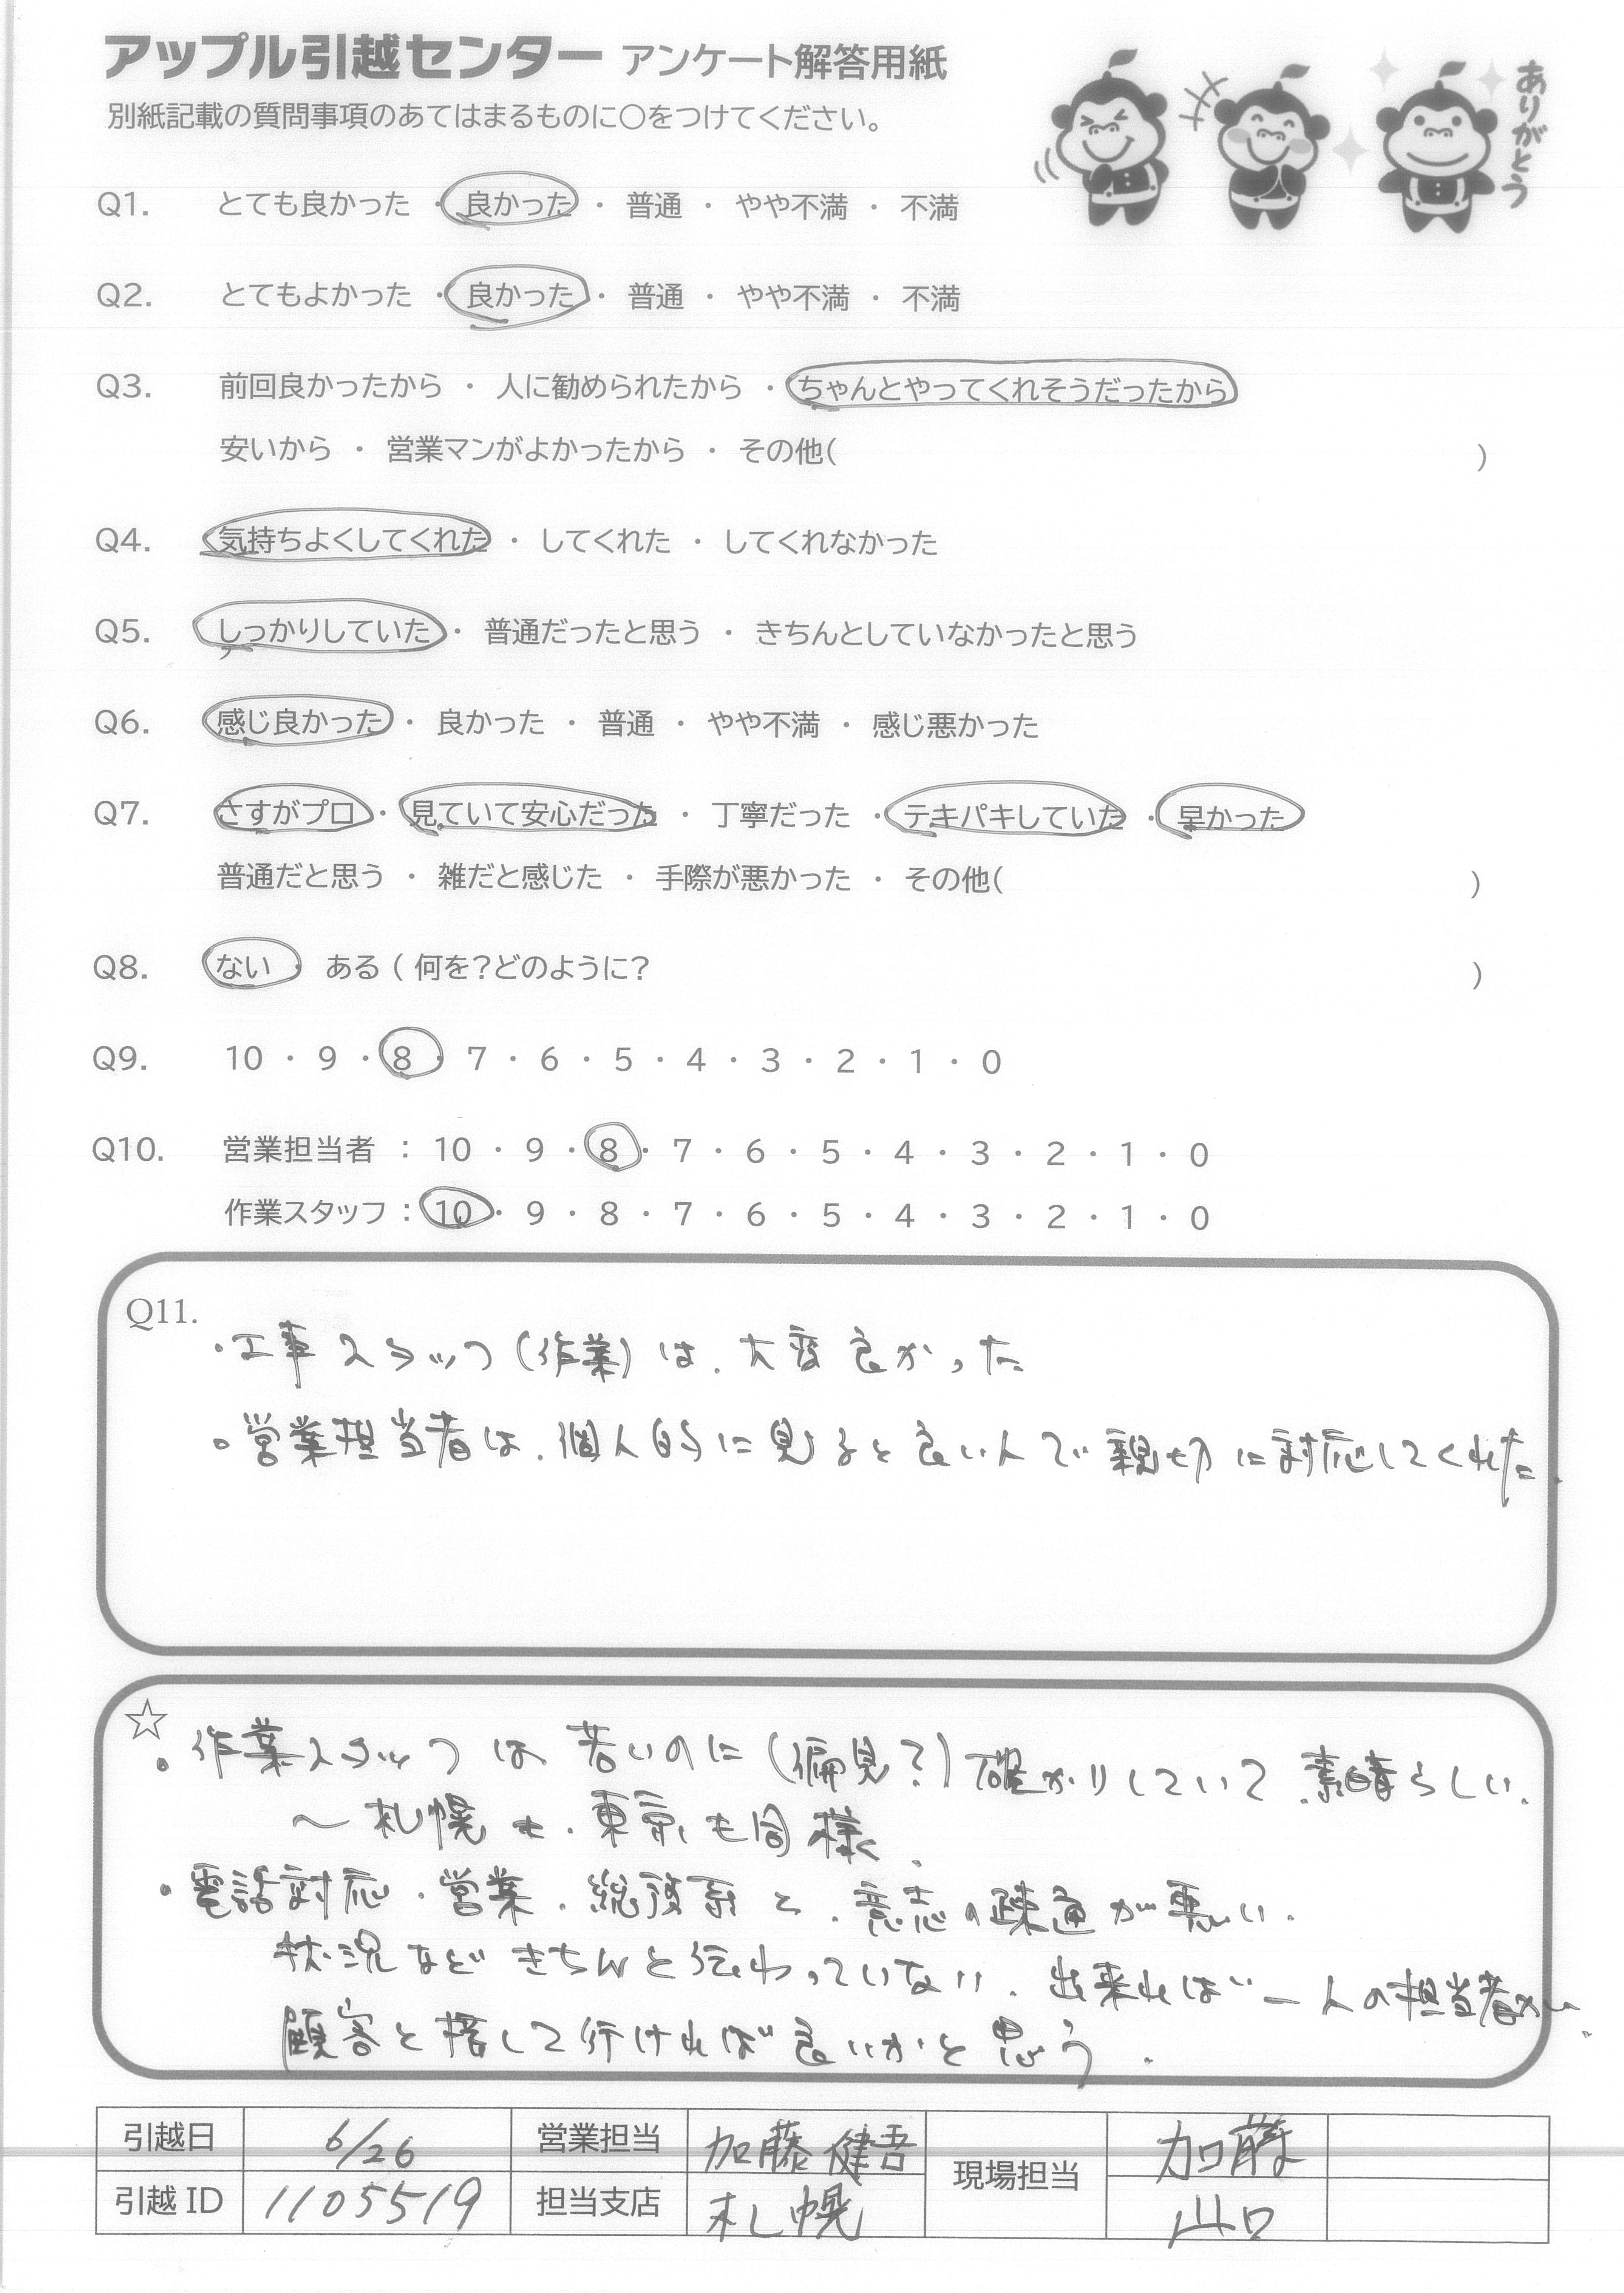 アップル引越センター アンケート解答用紙
別紙記載の質問事項のあてはまるものに○をつけてください。
ありがとう
Q1. とても良かった ・ 良かった ・ 普通 ・ やや不満 ・ 不満
Q2. とてもよかった ・ 良かった ・ 普通 ・ やや不満 ・ 不満
Q3. 前回良かったから ・ 人に勧められたから ・ ちゃんとやってくれそうだったから
安いから ・ 営業マンがよかったから ・ その他( )
Q4. 気持ちよくしてくれた ・ してくれた ・ してくれなかった
Q5. しっかりしていた ・ 普通だったと思う ・ きちんとしていなかったと思う
Q6. 感じ良かった ・ 良かった ・ 普通 ・ やや不満 ・ 感じ悪かった
Q7. さすがプロ ・ 見ていて安心だった ・ 丁寧だった ・ テキパキしていた ・ 早かった
普通だと思う ・ 雑だと感じた ・ 手際が悪かった ・ その他( )
Q8. ない ・ ある ( 何を?どのように? )
Q9. 10 ・ 9 ・ 8 ・ 7 ・ 6 ・ 5 ・ 4 ・ 3 ・ 2 ・ 1 ・ 0
Q10. 営業担当者 : 10 ・ 9 ・ 8 ・ 7 ・ 6 ・ 5 ・ 4 ・ 3 ・ 2 ・ 1 ・ 0
作業スタッフ : 10 ・ 9 ・ 8 ・ 7 ・ 6 ・ 5 ・ 4 ・ 3 ・ 2 ・ 1 ・ 0
Q11.
・工事スタッフ(作業)は、大変良かった
・営業担当者は、個人的に見ると良い人で親切に対応してくれた.
☆
・作業スタッフは若いのに(偏見?)確かりしていて素晴らしい.
〜札幌も、東京も同様.
・電話対応・営業・総務系と、意志の疎通が悪い.
状況などきちんと伝わっていない. 出来れば一人の担当者が、
顧客と接して行ければ良いかと思う.
引越日 6/26 営業担当 加藤健吾 現場担当 加藤
引越ID 1105519 担当支店 札幌 山口